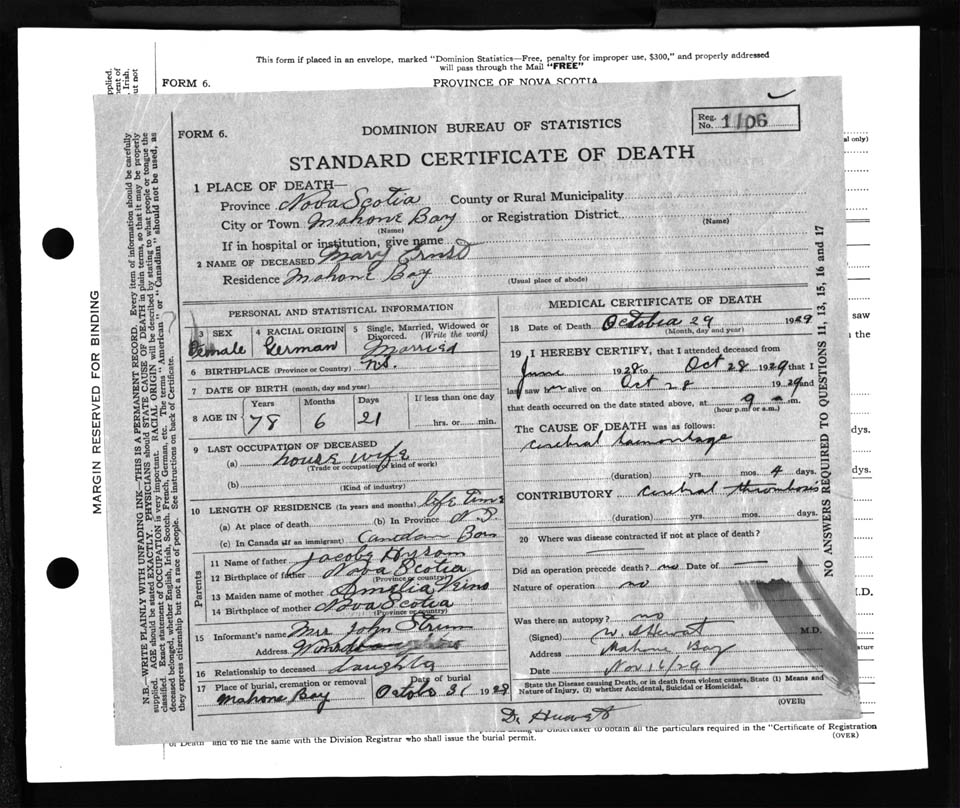 This form if placed in an envelope, marked "Dominion Statistics—Free, penalty for improper use, $300," and properly addressed
will pass through the Mail "FREE"
FORM 6.
PROVINCE OF NOVA SCOTIA
MARGIN RESERVED FOR BINDING
N.B.—WRITE PLAINLY WITH UNFADING INK—THIS IS A PERMANENT RECORD. Every item of information should be carefully
supplied. AGE should be stated EXACTLY. PHYSICIANS should STATE CAUSE OF DEATH in plain terms, so that it may be properly
classified. Exact statement of OCCUPATION is very important. RACIAL ORIGIN will be described by stating to what people or tongue the
deceased belonged, whether English, Irish, Scotch, French, German, etc. The terms "American" or "Canadian" should not be used, as
they express citizenship but not a race of people. See instructions on back of Certificate.
FORM 6.
DOMINION BUREAU OF STATISTICS
Reg. No. 1106
STANDARD CERTIFICATE OF DEATH
1 PLACE OF DEATH—
Province Nova Scotia County or Rural Municipality
City or Town Mahone Bay or Registration District
(Name) (Name)
If in hospital or institution, give name
2 NAME OF DECEASED Mary Ernst
Residence Mahone Bay (Usual place of abode)
PERSONAL AND STATISTICAL INFORMATION
3 SEX Female
4 RACIAL ORIGIN German
5 Single, Married, Widowed or Divorced. (Write the word) Married
6 BIRTHPLACE (Province or Country) N.S.
7 DATE OF BIRTH (month, day and year)
8 AGE IN Years 78 Months 6 Days 21 If less than one day hrs. or min.
9 LAST OCCUPATION OF DECEASED
(a) house wife
(Trade or occupation or kind of work)
(b)
(Kind of industry)
10 LENGTH OF RESIDENCE (In years and months) life time
(a) At place of death (b) In Province N.S.
(c) In Canada (if an immigrant) Canadian Born
Parents
11 Name of father Jacob Hyson
12 Birthplace of father Nova Scotia
(Province or country)
13 Maiden name of mother Amelia
14 Birthplace of mother Nova Scotia
(Province or country)
15 Informant's name Mrs John Strum
Address
16 Relationship to deceased daughter
17 Place of burial, cremation or removal Date of burial
Mahone Bay October 31 1929
MEDICAL CERTIFICATE OF DEATH
18 Date of Death October 29 1929
(Month, day and year)
19 I HEREBY CERTIFY, that I attended deceased from
June 1928 to Oct 28 1929 that I
last saw her alive on Oct 28 1929 and
that death occurred on the date stated above, at 9 a m.
(hour p.m. or a.m.)
THE CAUSE OF DEATH was as follows:
cerebral haemorrhage
(duration) yrs. mos. 4 days.
CONTRIBUTORY cerebral thrombosis
(duration) yrs. mos. days.
20 Where was disease contracted if not at place of death?
Did an operation precede death? no Date of —
Nature of operation no
Was there an autopsy? no
(Signed) M.D.
Address Mahone Bay
Date Nov 16/29
State the Disease causing Death, or in death from violent causes, State (1) Means and
Nature of Injury, (2) whether Accidental, Suicidal or Homicidal.
(OVER)
NO ANSWERS REQUIRED TO QUESTIONS 11, 13, 15, 16 and 17
to obtain all the particulars required in the "Certificate of Registration
of Death" and to file the same with the Division Registrar who shall issue the burial permit.
(OVER)